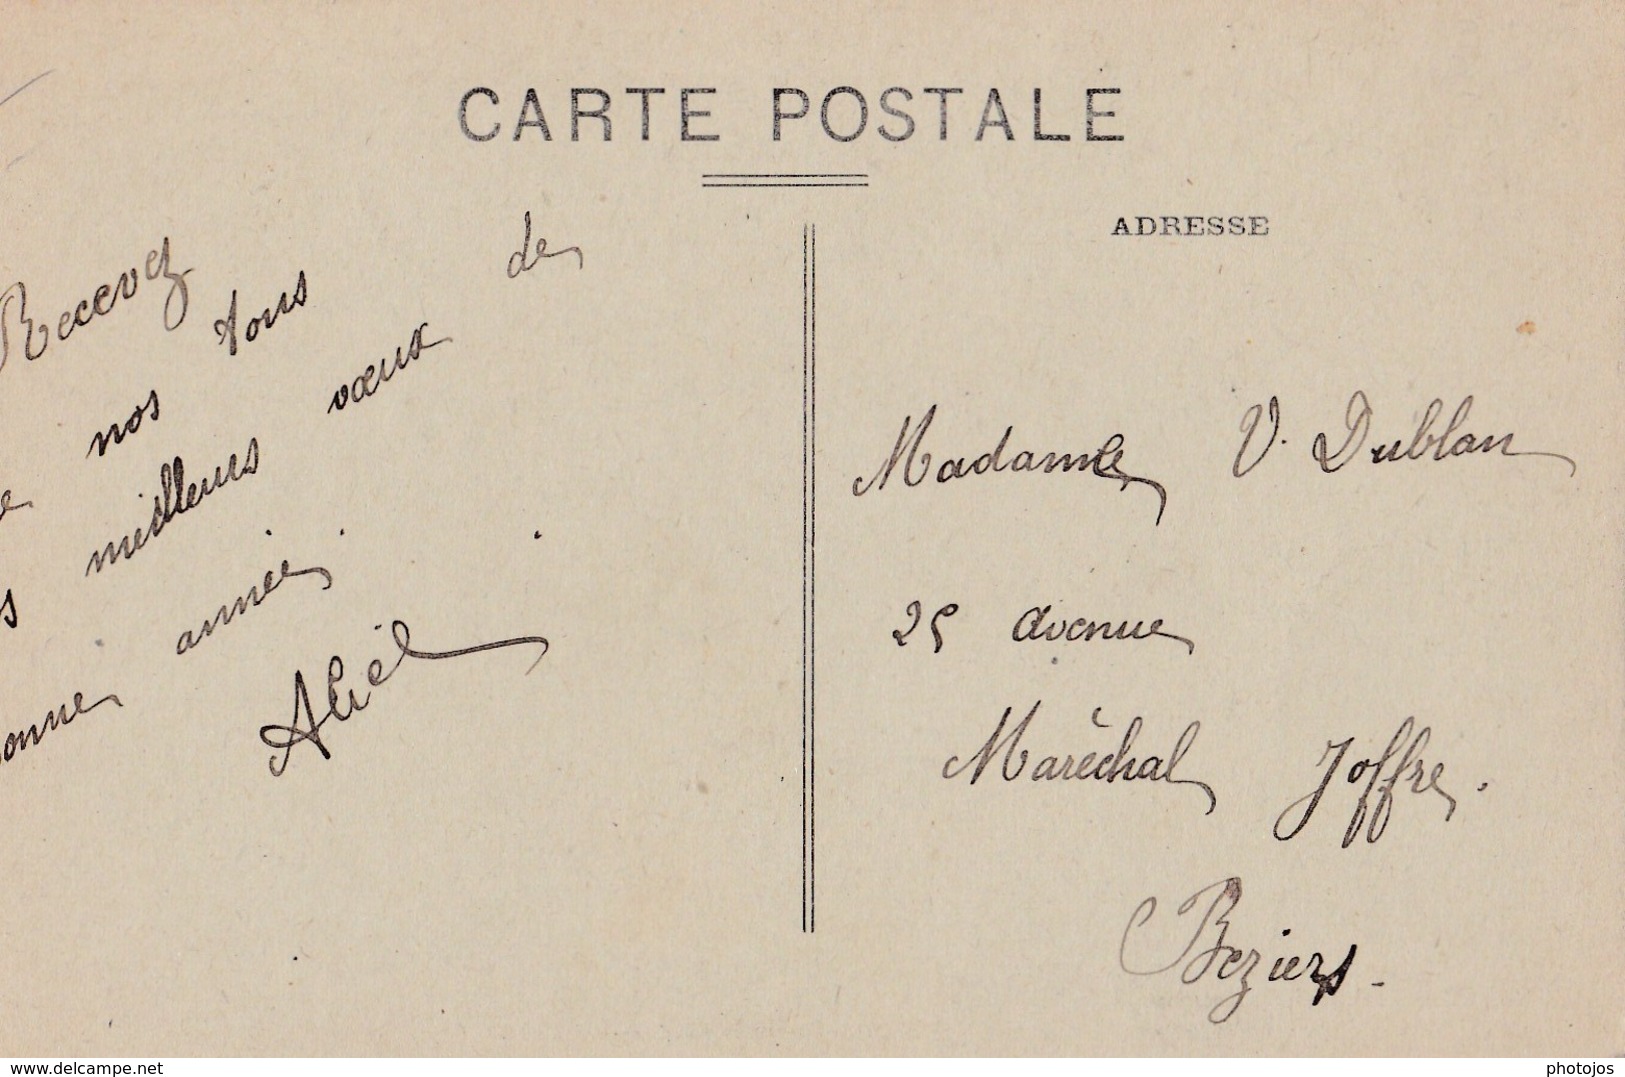 CARTE POSTALE
ADRESSE
Recevez
nos tous
meilleurs vœux de
onne année.
Madame V. Dublan
25 avenue
Maréchal Joffre.
Beziers.
www.delcampe.net
photojos